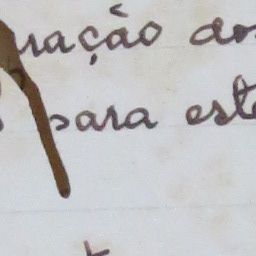 ração dos
para este